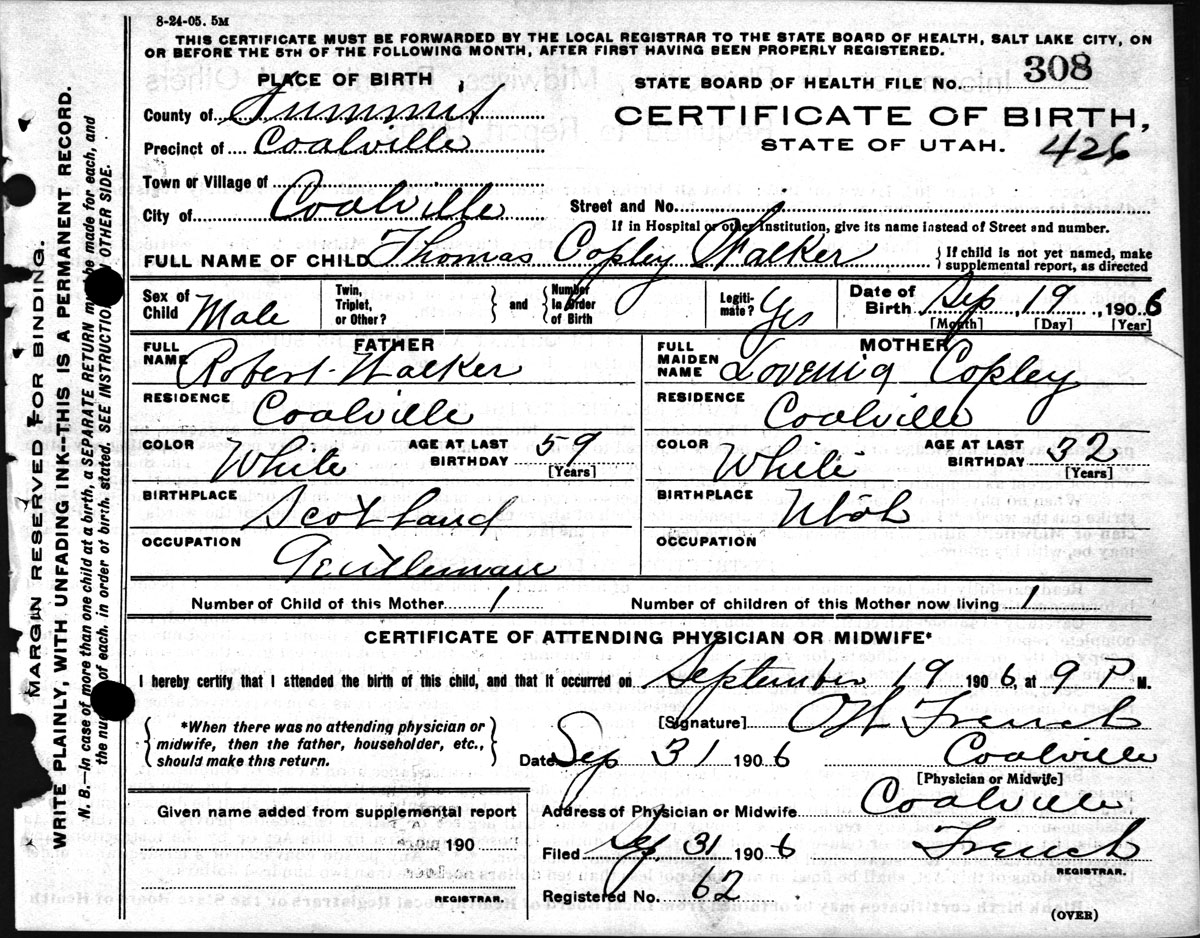 8-24-05. 5M
THIS CERTIFICATE MUST BE FORWARDED BY THE LOCAL REGISTRAR TO THE STATE BOARD OF HEALTH, SALT LAKE CITY, ON
OR BEFORE THE 5TH OF THE FOLLOWING MONTH, AFTER FIRST HAVING BEEN PROPERLY REGISTERED.
PLACE OF BIRTH
STATE BOARD OF HEALTH FILE No. 308
County of Summit
CERTIFICATE OF BIRTH,
Precinct of Coalville
STATE OF UTAH. 426
Town or Village of
City of Coalville
Street and No.
If in Hospital or other Institution, give its name instead of Street and number.
FULL NAME OF CHILD Thomas Copley Walker { If child is not yet named, make supplemental report, as directed
Sex of Child Male Twin, Triplet, or Other? } and { Number in Order of Birth Legiti- mate? Yes Date of Birth Sep, 19, 1906
[Month] [Day] [Year]
FATHER MOTHER
FULL NAME Robert Walker
FULL MAIDEN NAME Lovenia Copley
RESIDENCE Coalville
RESIDENCE Coalville
COLOR White AGE AT LAST BIRTHDAY 59 [Years]
COLOR White AGE AT LAST BIRTHDAY 32 [Years]
BIRTHPLACE Scotland
BIRTHPLACE Utah
OCCUPATION Gentleman
OCCUPATION
Number of Child of this Mother 1 Number of children of this Mother now living 1
CERTIFICATE OF ATTENDING PHYSICIAN OR MIDWIFE*
I hereby certify that I attended the birth of this child, and that it occurred on September 19 1906, at 9 P M.
{ *When there was no attending physician or midwife, then the father, householder, etc., should make this return. }
[Signature] French
Date Sep 31 1906 Coalville
[Physician or Midwife]
Given name added from supplemental report
190
REGISTRAR.
Address of Physician or Midwife Coalville
Filed Sep 31 1906 French
REGISTRAR.
Registered No. 62
(OVER)
MARGIN RESERVED FOR BINDING.
WRITE PLAINLY, WITH UNFADING INK--THIS IS A PERMANENT RECORD.
N. B.—In case of more than one child at a birth, a SEPARATE RETURN must be made for each, and
the of each, in order of birth, stated. SEE INSTRUCTION OTHER SIDE.